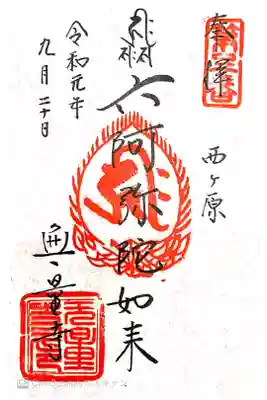 奉拝
西ヶ原
六阿弥陀如来
無量寺
令和元年
九月二十日